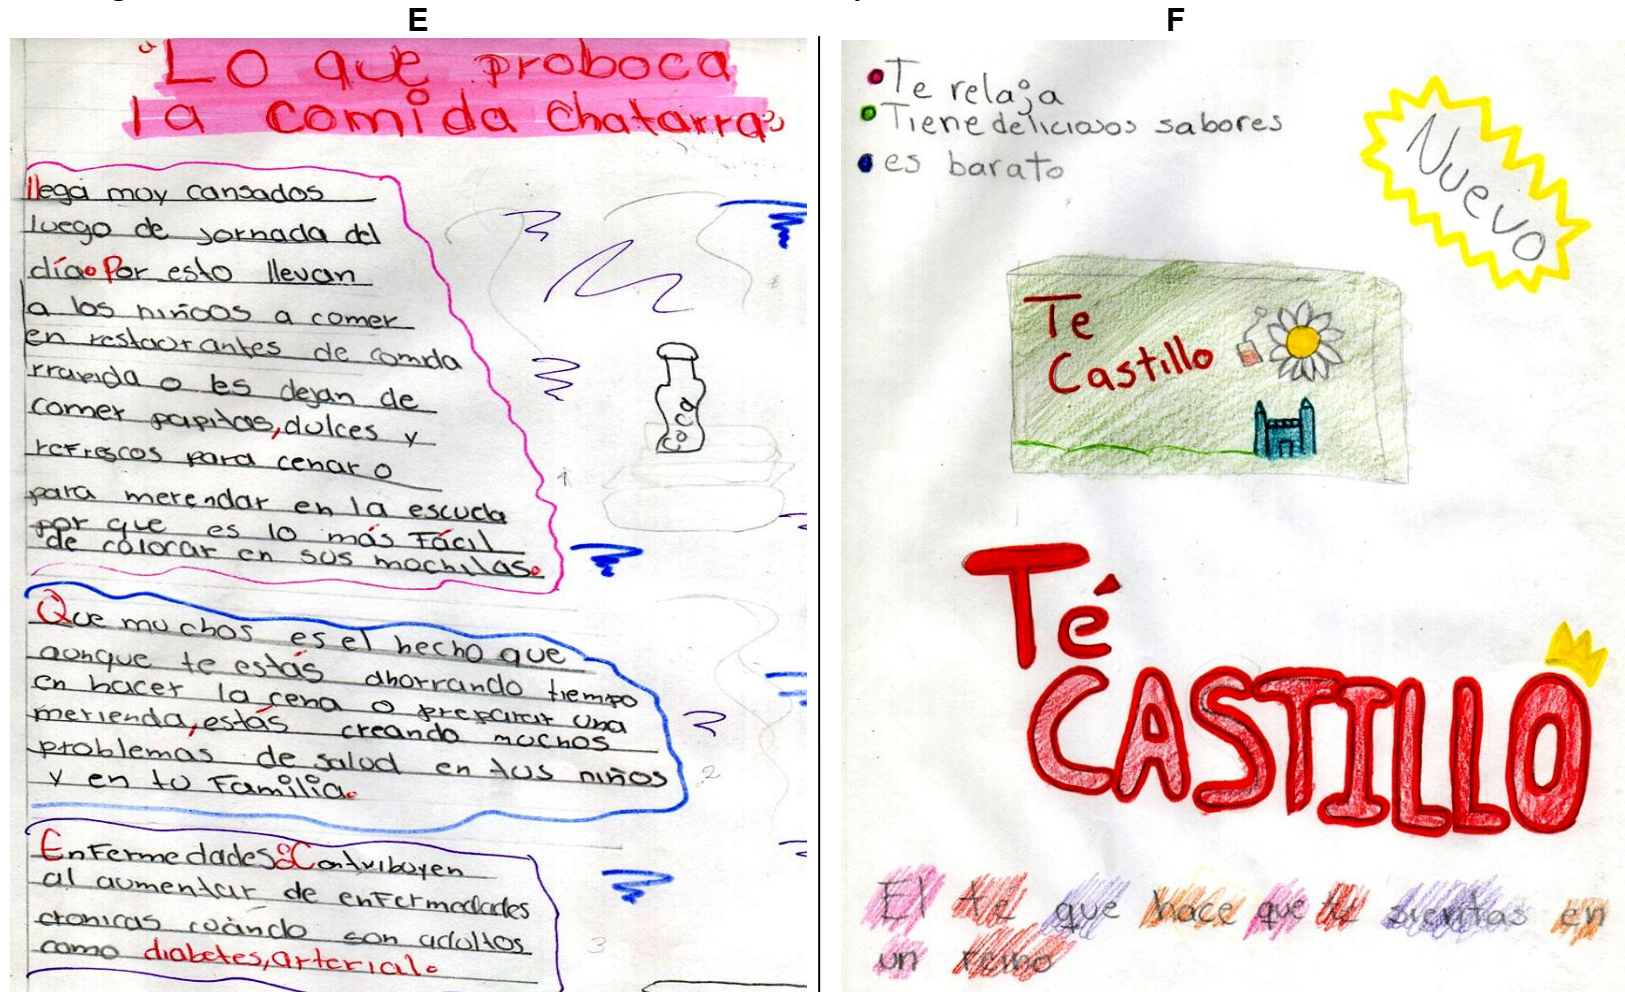 E
"Lo que proboca
la comida chatarra"
llega moy cansados
luego de jornada del
día. Por esto llevan
a los niños a comer
en restaorantes de comida
rravida o les dejan de
comer papitas, dolces y
refrescos para cenar o
para merendar en la escuela
por que es lo más Fácil
de colocar en sus mochilas.
coca
1
Que mu chos es el hecho que
aunque te estás ahorrando tiempo
en hacer la cena o preparar una
merienda, estás creando muchos
problemas de salud en tus niños
y en tu Familia.
2
EnFermedades: Contriboyen
al aumentar de enFermedades
cronicas cuándo son adultos
como diabetes, arterial.
3
F
Te relaja
Tiene deliciosos sabores
es barato
Nuevo
Te
Castillo
Té
CASTILLO
El te que hace que tu sientas en
un reino